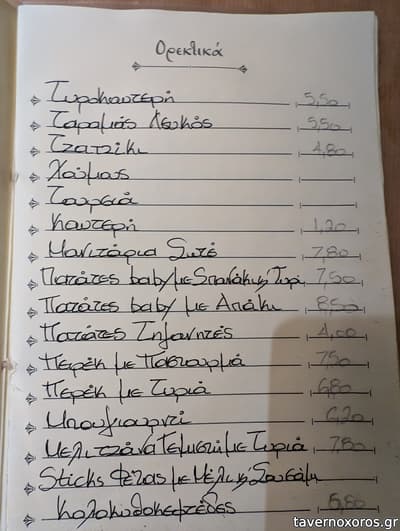 Ορεκτικά
Τυροκαυτερή 5,50
Ταραμάς Λευκός 5,50
Τζατζίκι 4,80
Χούμους
Τουρσιά
Καυτερή 1,20
Μανιτάρια Σωτέ 7,80
Πατάτες baby με Σπανάκι & Τυρί 7,50
Πατάτες baby με Απάκι 8,50
Πατάτες Τηγανητές 4,00
Περέκ με Παστουρμά 7,50
Περέκ με Τυριά 6,80
Μπουγιουρντί 6,20
Μελιτζάνα Γεμιστή με Τυριά 7,80
Sticks Φέτας με Μέλι & Σουσάμι
Κολοκυθοκεφτέδες 6,80
tavernoxoros.gr